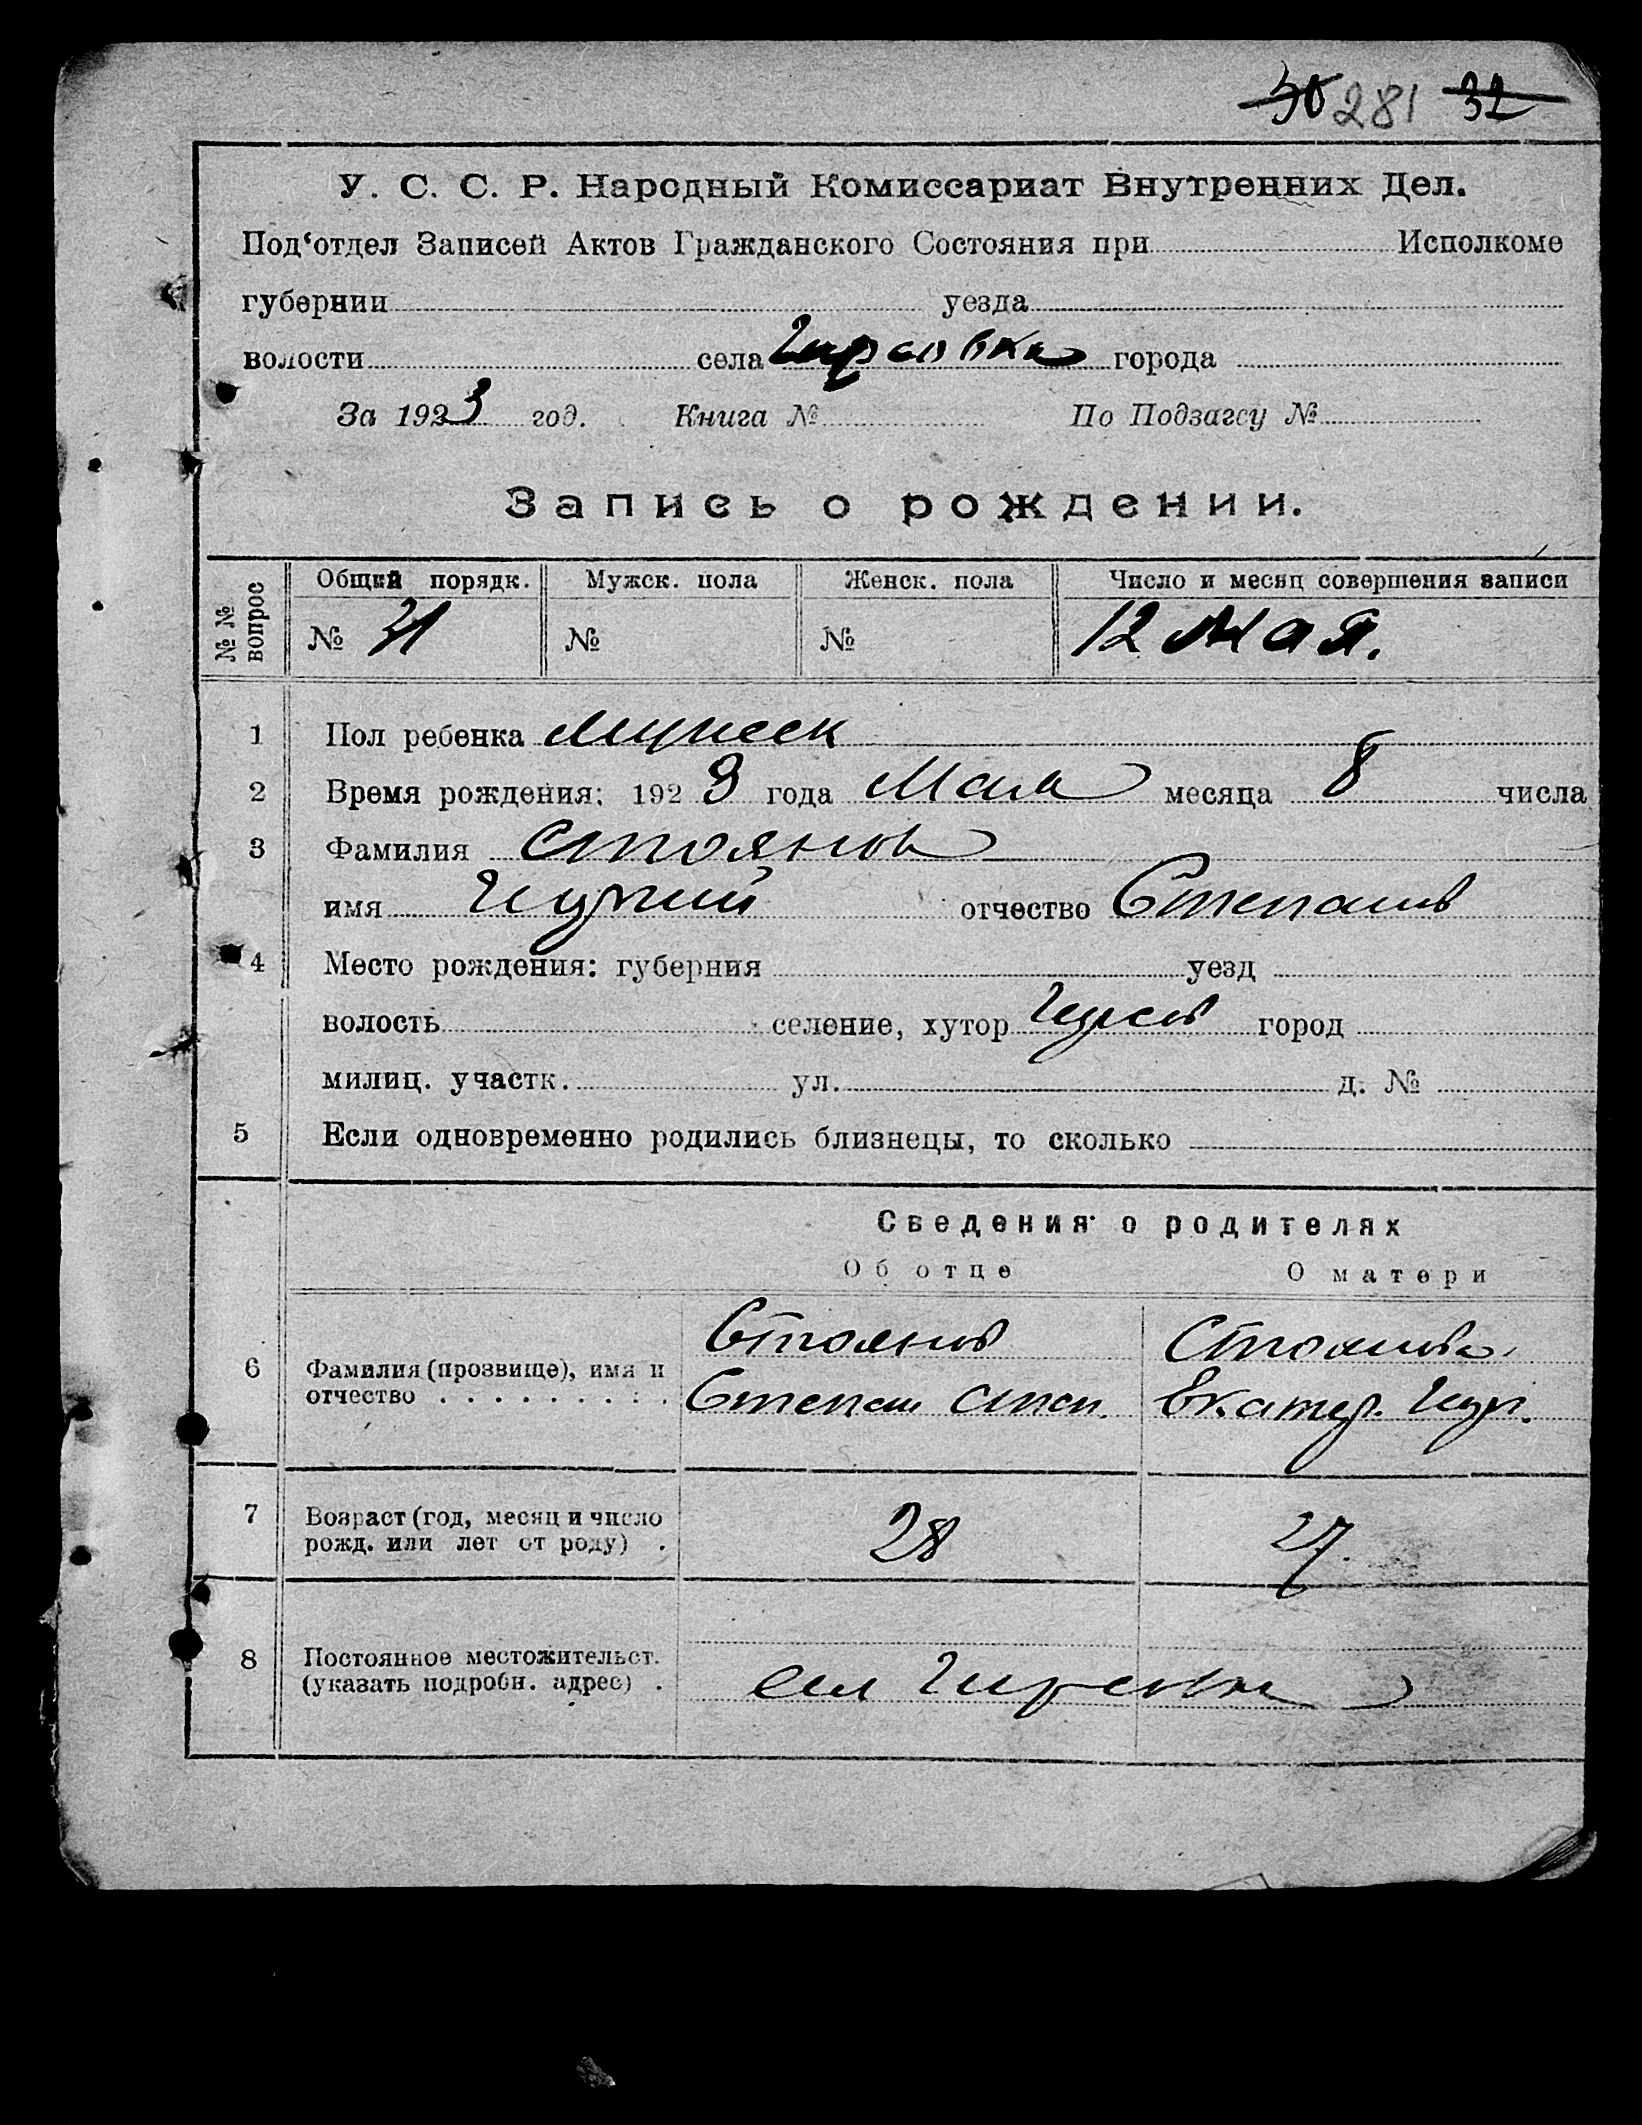 30 281 32
У. С. С. Р. Народный Комиссариат Внутренних Дел.
Под'отдел Записей Актов Гражданского Состояния при Исполкоме
губернии уезда
волости села города
За 1923 год. Книга № По Подзагсу №
Запись о рождении.
№ № вопрос Общий порядк. Мужск. пола Женск. пола Число и месяц совершения записи
№ 31 № № 12 Мая.
1 Пол ребенка мужеск
2 Время рождения: 1923 года Мая месяца 8 числа
3 Фамилия Стоянов
имя отчество Степанов
4 Место рождения: губерния уезд
волость селение, хутор город
милиц. участк. ул. д. №
5 Если одновременно родились близнецы, то сколько
Сведения о родителях
Об отце О матери
Стоянов Стоянова
6 Фамилия (прозвище), имя и
отчество Степан Степ. Екатер.
7 Возраст (год, месяц и число
рожд. или лет от роду) 28 27
8 Постоянное местожительст.
(указать подробн. адрес) сел